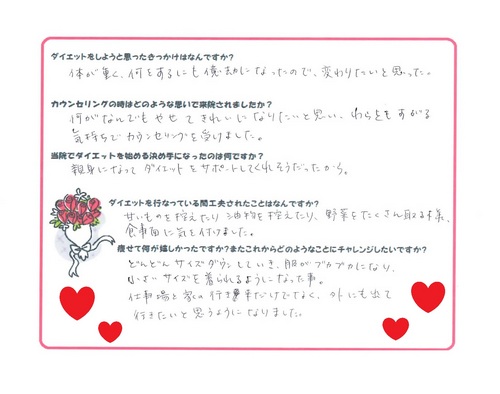 ダイエットをしようと思ったきっかけはなんですか?
体が重く、何をするにも億劫になったので、変わりたいと思った。
カウンセリングの時はどのような思いで来院されましたか?
何がなんでもやせてきれいになりたいと思い、わらをもすがる
気持ちでカウンセリングを受けました。
当院でダイエットを始める決め手になったのは何ですか?
親身になってダイエットをサポートしてくれそうだったから。
ダイエットを行なっている間工夫されたことはなんですか?
甘いものを控えたり油物を控えたり、野菜をたくさん取る様、
食事面に気を付けました。
痩せて何が嬉しかったですか?またこれからどのようなことにチャレンジしたいですか?
どんどんサイズダウンしていき、服がブカブカになり、
小さいサイズを着られるようになった事。
仕事場と家の行き来だけでなく、外にも出て
行きたいと思うようになりました。